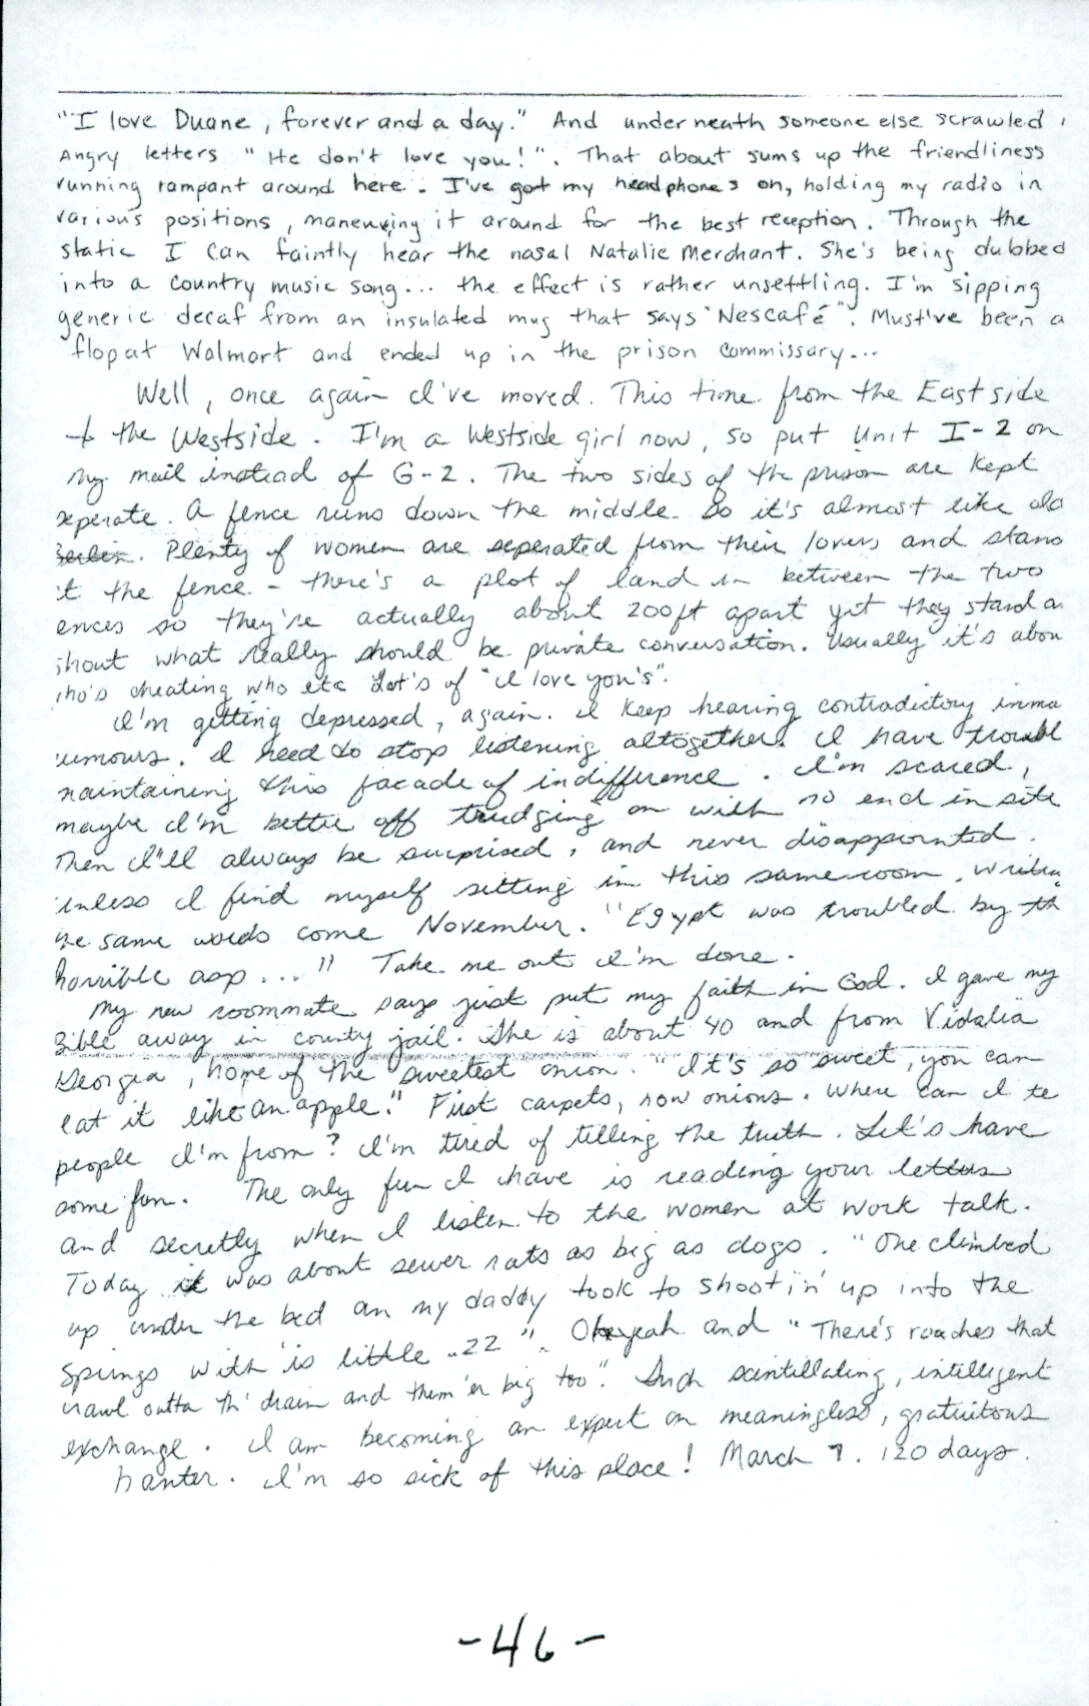 "I love Duane, forever and a day." And underneath someone else scrawled,
Angry letters "He don't love you!". That about sums up the friendliness
running rampant around here. I've got my headphones on, holding my radio in
various positions, maneuving it around for the best reception. Through the
static I can faintly hear the nasal Natalie Merchant. She's being dubbed
into a country music song... the effect is rather unsettling. I'm sipping
generic decaf from an insulated mug that says "Nescafé". Must've been a
flop at Walmart and ended up in the prison commissary...
Well, once again I've moved. This time from the Eastside
to the Westside. I'm a Westside girl now, so put Unit I-2 on
my mail instead of G-2. The two sides of the prison are kept
seperate. A fence runs down the middle. So it's almost like old
Berlin. Plenty of women are seperated from their lovers and stand
't the fence - there's a plot of land in between the two
ences so they're actually about 200ft apart yet they stand a
shout what really should be private conversation. Usually it's abou
who's cheating who etc Lot's of "I love you's".
I'm getting depressed, again. I keep hearing contradictory inma
umours. I need to stop listening altogether. I have troubl
maintaining this facade of indifference. I'm scared,
maybe I'm better off trudging on with no end in site
Then I'll always be surprised, and never disappointed.
unless I find myself sitting in this same room, writin
the same words come November. "Egypt was troubled by th
horrible asp..." Take me out I'm done.
My new roommate says just put my faith in God. I gave my
Bible away in county jail. She is about 40 and from Vidalia
Georgia, home of the sweetest onion. "It's so sweet, you can
eat it like an apple." First carpets, now onions. Where can I te
people I'm from? I'm tired of telling the truth. Let's have
some fun. The only fun I have is reading your letters
and secretly when I listen to the women at work talk.
Today it was about sewer rats as big as dogs. "One climbed
up under the bed an my daddy took to shootin' up into the
springs with 'is little .22". Oh yeah and "There's roaches that
crawl outta th' drain and them'er big too". Such scintillating, intelligent
exchange. I am becoming an expert on meaningless, gratuitous
banter. I'm so sick of this place! March 7. 120 days.
-46-